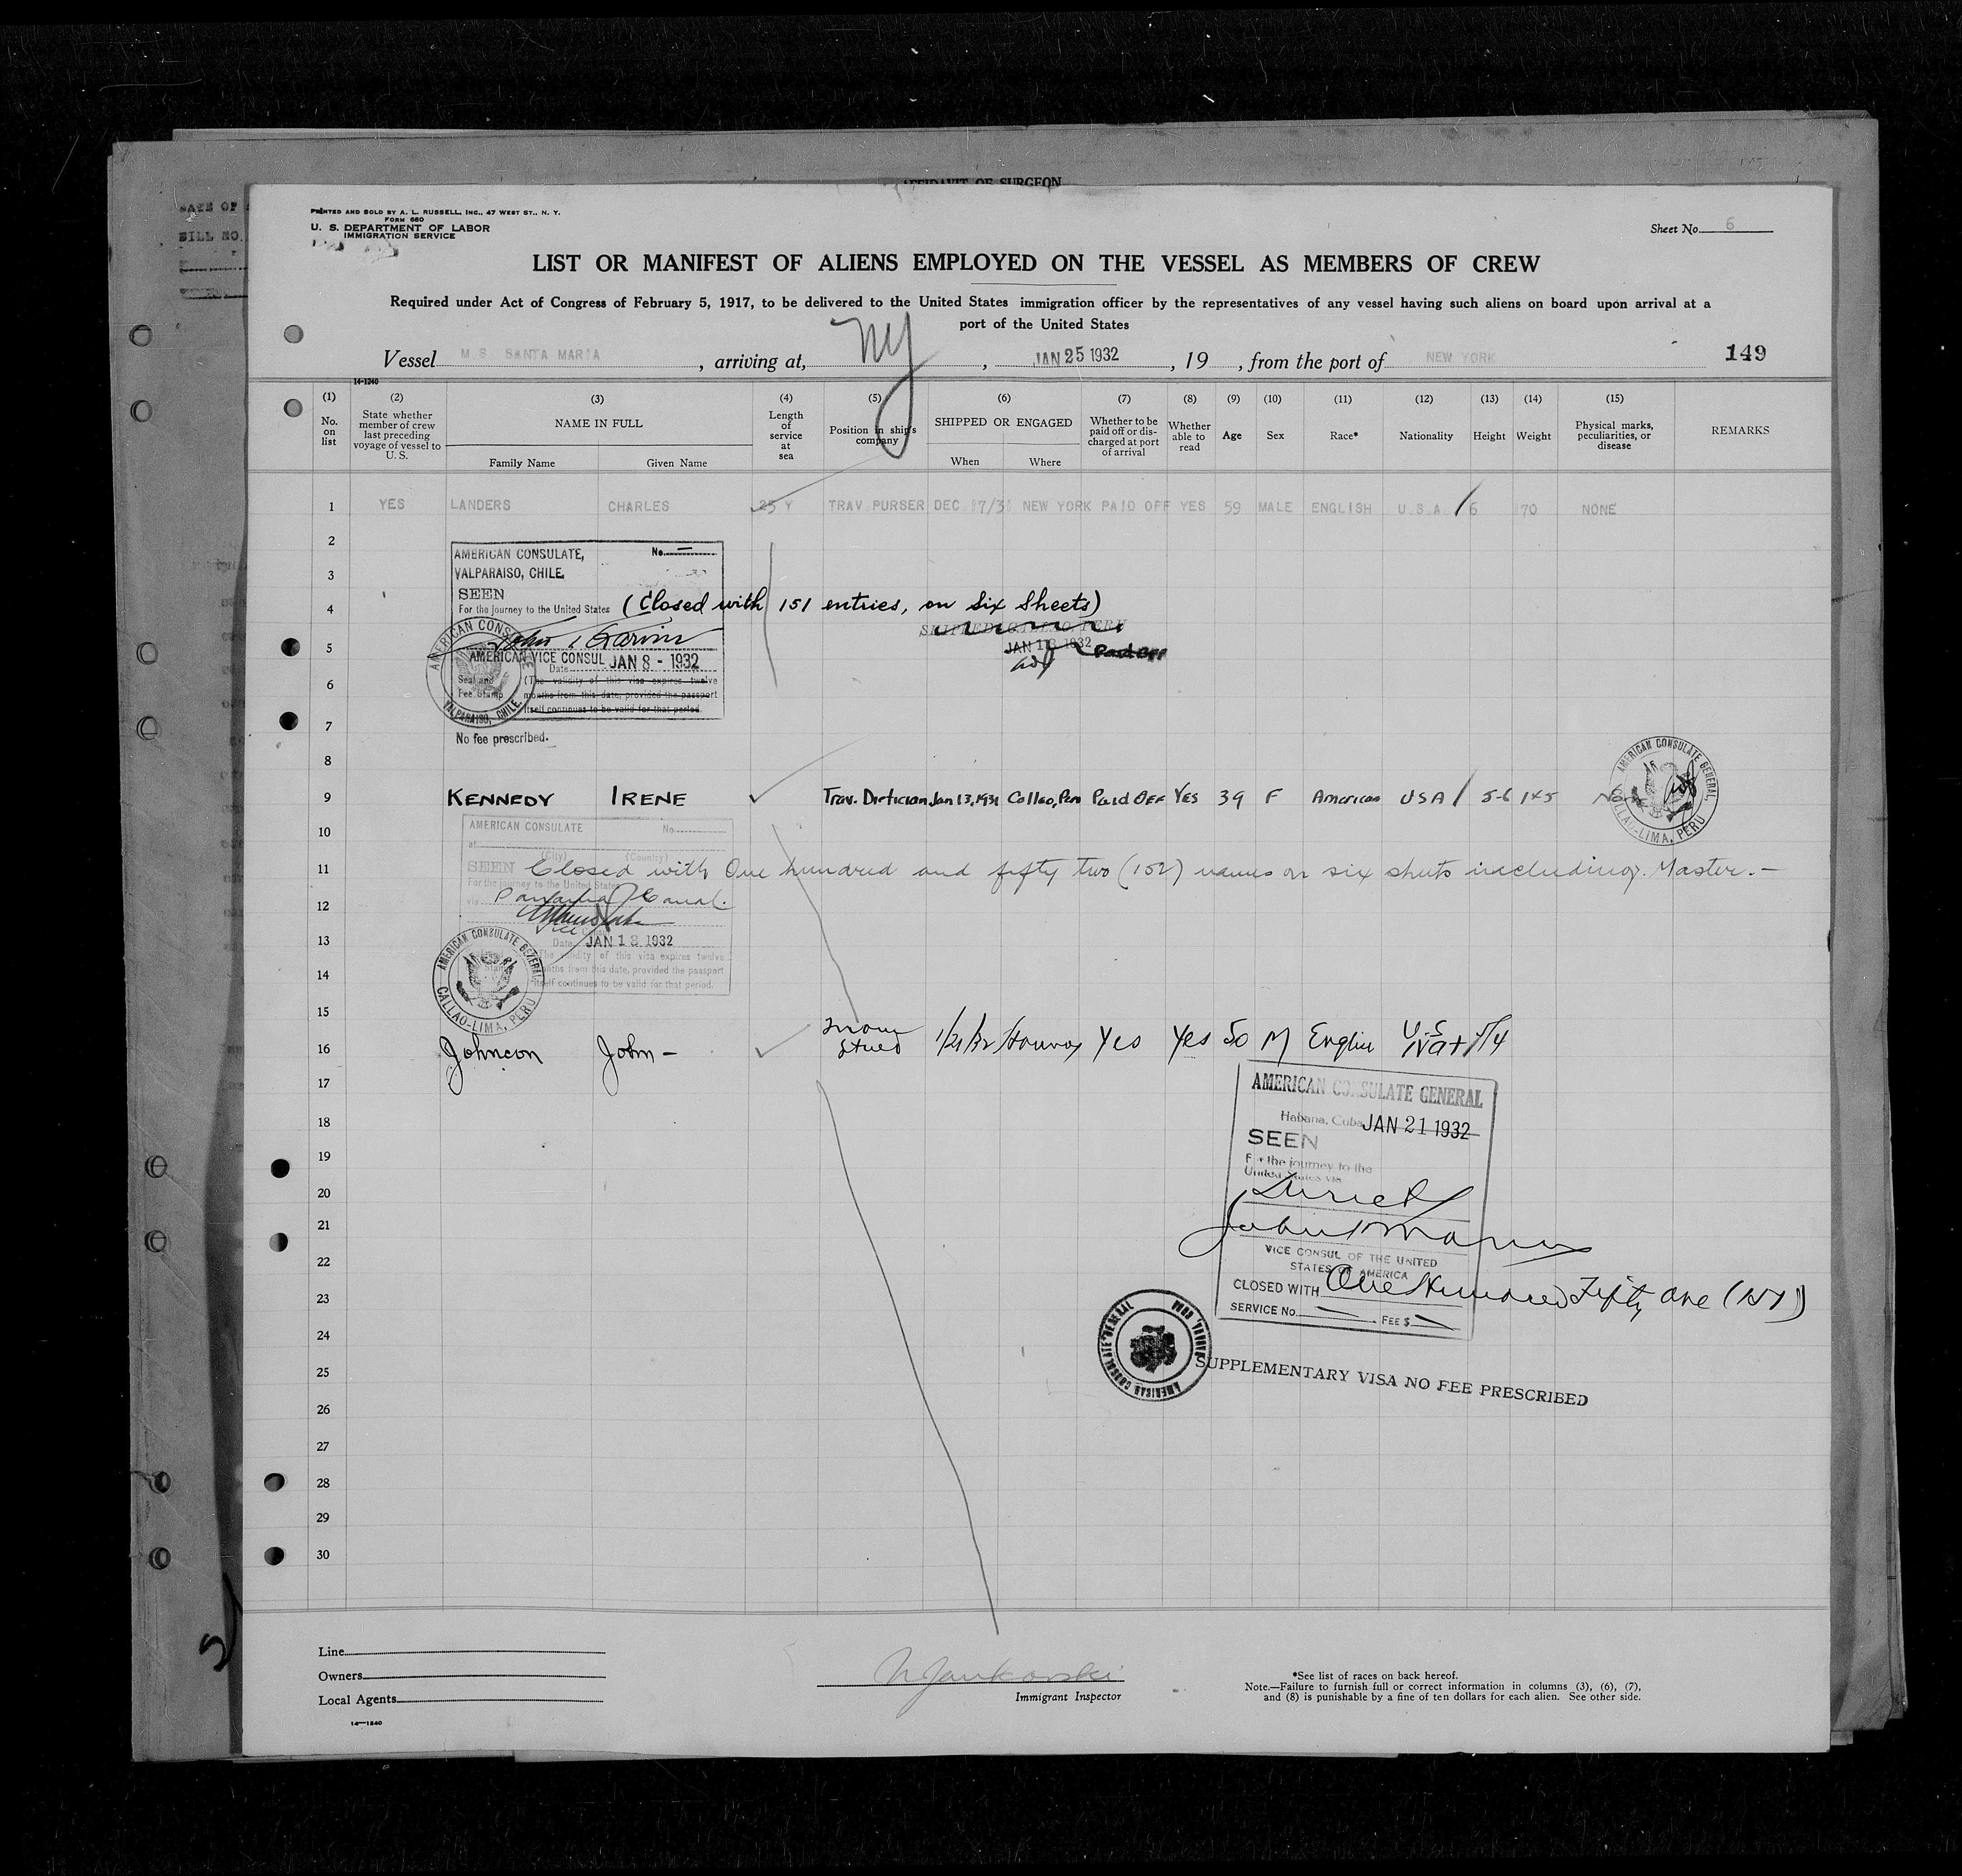 AFFIDAVIT OF SURGEON
DATE OF
BILL NO.
PRINTED AND SOLD BY A. L. RUSSELL, INC., 47 WEST ST., N. Y.
FORM 680
U. S. DEPARTMENT OF LABOR
IMMIGRATION SERVICE
Sheet No. 6
LIST OR MANIFEST OF ALIENS EMPLOYED ON THE VESSEL AS MEMBERS OF CREW
Required under Act of Congress of February 5, 1917, to be delivered to the United States immigration officer by the representatives of any vessel having such aliens on board upon arrival at a
port of the United States
Vessel M.S. SANTA MARIA, arriving at, NY, JAN 25 1932, 19 , from the port of NEW YORK 149
14-1240
(1) (2) (3) (4) (5) (6) (7) (8) (9) (10) (11) (12) (13) (14) (15)
No. on list
State whether member of crew last preceding voyage of vessel to U. S.
NAME IN FULL
Family Name Given Name
Length of service at sea
Position in ship's company
SHIPPED OR ENGAGED
When Where
Whether to be paid off or discharged at port of arrival
Whether able to read
Age
Sex
Race*
Nationality
Height
Weight
Physical marks, peculiarities, or disease
REMARKS
1 YES LANDERS CHARLES 25 Y TRAV PURSER DEC 17/31 NEW YORK PAID OFF YES 59 MALE ENGLISH U.S.A. 6 170 NONE
2
AMERICAN CONSULATE, No. —
3
VALPARAISO, CHILE.
SEEN
4
For the journey to the United States (Closed with 151 entries, on Six Sheets)
SHIPPED CALLAO PERU
5
JAN 13 1932 Paid Off
AMERICAN VICE CONSUL JAN 8 - 1932
Date
6
Seal and Fee Stamp
(The validity of this visa expires twelve
months from this date, provided the passport
itself continues to be valid for that period.
AMERICAN CONSULATE VALPARAISO, CHILE.
7
No fee prescribed.
8
9 KENNEDY IRENE Trav. Dietician Jan 13, 1931 Callao, Peru Paid Off Yes 39 F American USA 5-6 145 None
AMERICAN CONSULATE GENERAL, CALLAO-LIMA, PERU
10
AMERICAN CONSULATE No.
at
(City) (Country)
11
SEEN Closed with One hundred and fifty two (152) names on six sheets including Master. —
For the journey to the United States
12
via Panama Canal.
13
Date JAN 13 1932
The validity of this visa expires twelve
14
months from this date, provided the passport
itself continues to be valid for that period.
AMERICAN CONSULATE GENERAL, CALLAO-LIMA, PERU
15
16 Johnson John — 1/21/32 Yes Yes 50 M English U.S. Nat 5/4
17
AMERICAN CONSULATE GENERAL
18
Habana, Cuba JAN 21 1932
19
SEEN
For the journey to the
United States via
20
Direct
21
22
VICE CONSUL OF THE UNITED
STATES OF AMERICA
23
CLOSED WITH One Hundred Fifty one (151)
SERVICE No. FEE $
24
AMERICAN CONSULATE GENERAL HABANA, CUBA
25
SUPPLEMENTARY VISA NO FEE PRESCRIBED
26
27
28
29
30
Line
Owners
Local Agents
14—1240
Immigrant Inspector
*See list of races on back hereof.
Note.—Failure to furnish full or correct information in columns (3), (6), (7),
and (8) is punishable by a fine of ten dollars for each alien. See other side.